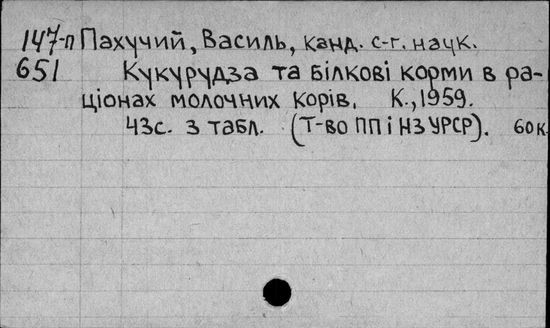 147-п Пахучий, Василь, канд. с-г. наук.
651 Кукурудза та білкові корми в ра-
ціонах молочних корів. К., 1959.
43с. з табл. (Т-во ПП і НЗ УРСР). 60к